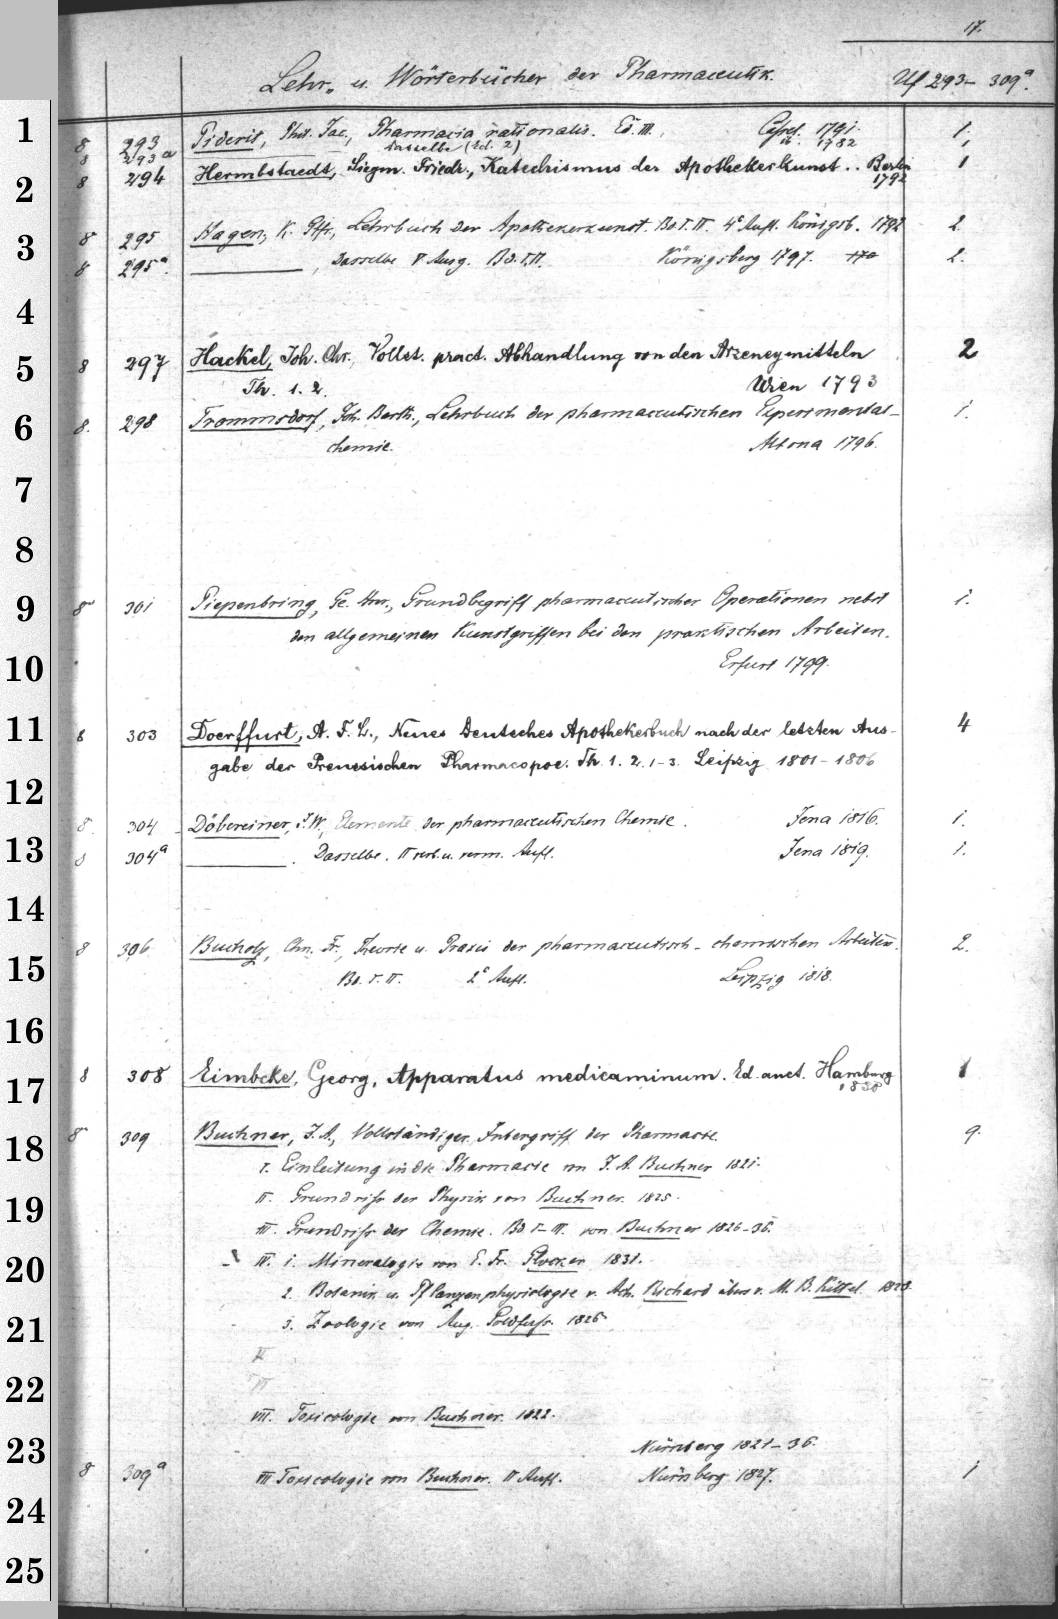 17.
Lehr- u. Wörterbücher der Pharmaceutik. Uf 293– 309a.
1
8 293 Piderit, Phil. Jac., Pharmacia rationalis. Ed. III., Cassel. 1791. 1.
8 293a Dasselbe (Ed. 2) ib. 1782 1
2
8 294 Hermbstaedt, Siegm. Friedr., Katechismus der Apothekerkunst .. Berlin 1
1792
3
8 295 Hagen, K. Gfr., Lehrbuch der Apothekerkunst. Bd. I. II. 4e Aufl. Königsb. 1792 2
8 295a. , Dasselbe V Ausg. Bd. I. II. Königsberg 1797. 2.
4
5
8 297 Hackel, Joh. Chr., Vollst. pract. Abhandlung von den Arzeneymitteln 2
Th. 1. 2. Wien 1793
6
8. 298 Trommsdorf, Joh. Barth., Lehrbuch der pharmaceutischen Experimental- 1.
chemie. Altona 1796.
7
8
9
8 301 Piepenbring, Ge. Hnr., Grundbegriff pharmaceutischer Operationen nebst 1.
den allgemeinen Kunstgriffen bei den praktischen Arbeiten.
10
Erfurt 1799.
11
8 303 Doerffurt, A. F. L., Neues Deutsches Apothekerbuch nach der letzten Aus- 4
gabe der Preussischen Pharmacopoe. Th. 1. 2. 1-3. Leipzig 1801-1806
12
8. 304 Döbereiner, J. W., Elemente der pharmaceutischen Chemie. Jena 1816. 1.
13
8 304a . Dasselbe. II verb. u. verm. Aufl. Jena 1819. 1.
14
8 306 Bucholz, Chn. Fr., Theorie u. Praxis der pharmaceutisch-chemischen Arbeiten. 2.
15
Bd. I. II. 2e Aufl. Leipzig 1818.
16
8 308 Eimbcke, Georg, Apparatus medicaminum. Ed. auct. Hamburg 1
17
8 309 Buchner, J. A., Vollständiger Inbegriff der Pharmacie. 9.
18
I. Einleitung in die Pharmacie von J. A. Buchner 1821.
II. Grundriss der Physik von Buchner. 1825.
19
III. Grundriss der Chemie. Bd. I-III. von Buchner 1826-36.
20
IV. 1. Mineralogie von E. Fr. Glocker 1831.
2. Botanik u. Pflanzenphysiologie v. Ach. Richard übers v. M. B. Kittel
21
3. Zoologie von Aug. Goldfuss. 1826
V
22
VI
VII. Toxicologie von Buchner. 1822.
23
Nürnberg 1821-36.
8 309a VII Toxicologie von Buchner. II Aufl. Nürnberg 1827. 1
24
25